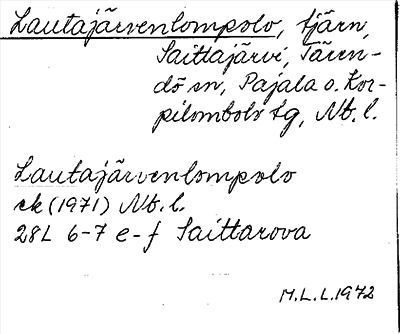 Lautajärvenlompolo, tjärn,
Saittajärvi, Tären-
dö sn, Pajala o. Kor-
pilombolo tg, Nb. l.
Lautajärvenlompolo
ek (1971) Nb. l.
28L 6-7 e-f Saittarova
M.L.L. 1972